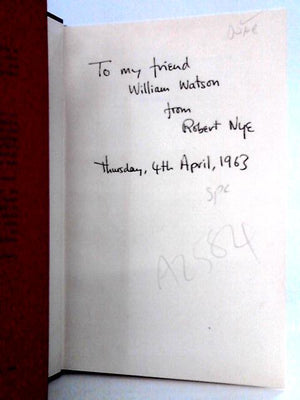 To my friend
William Watson
from
Robert Nye
Thursday, 4th April, 1963
spc
A2584